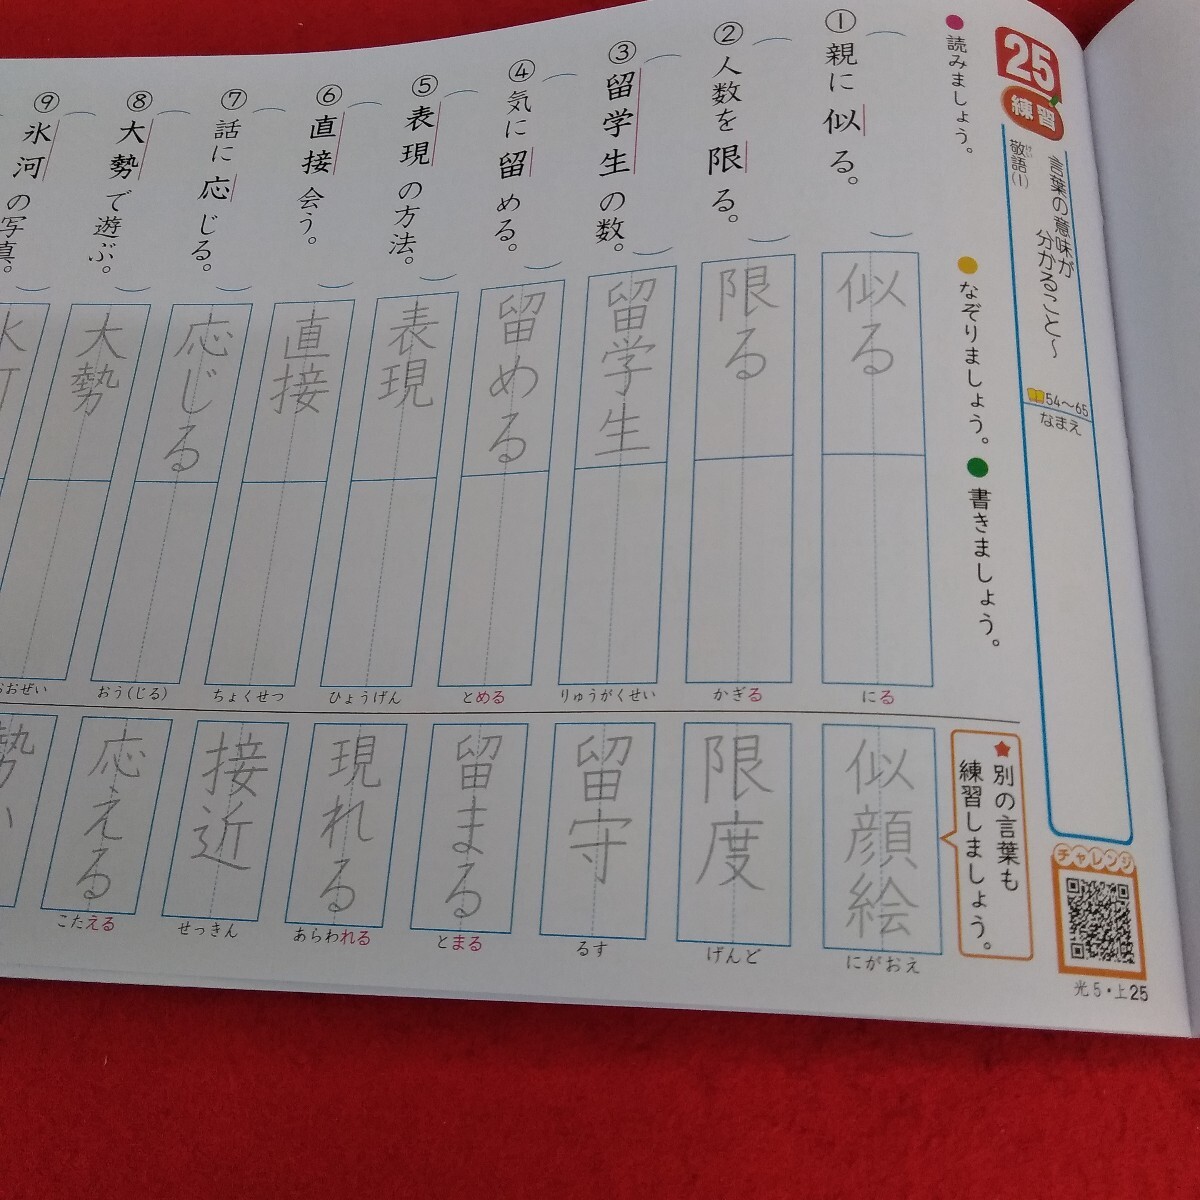 25
練習
言葉の意味が
分かること～
敬語(1)
けい
54～65
なまえ
チャレンジ
光5・上25
● 読みましょう。
● なぞりましょう。
● 書きましょう。
① 親に似る。
② 人数を限る。
③ 留学生の数。
④ 気に留める。
⑤ 表現の方法。
⑥ 直接会う。
⑦ 話に応じる。
⑧ 大勢で遊ぶ。
⑨ 氷河の写真。
似る
にる
限る
かぎる
留学生
りゅうがくせい
留める
とめる
表現
ひょうげん
直接
ちょくせつ
応じる
おう(じる)
大勢
おおぜい
★別の言葉も
練習しましょう。
似顔絵
にがおえ
限度
げんど
留守
るす
留まる
とまる
現れる
あらわれる
接近
せっきん
応える
こたえる